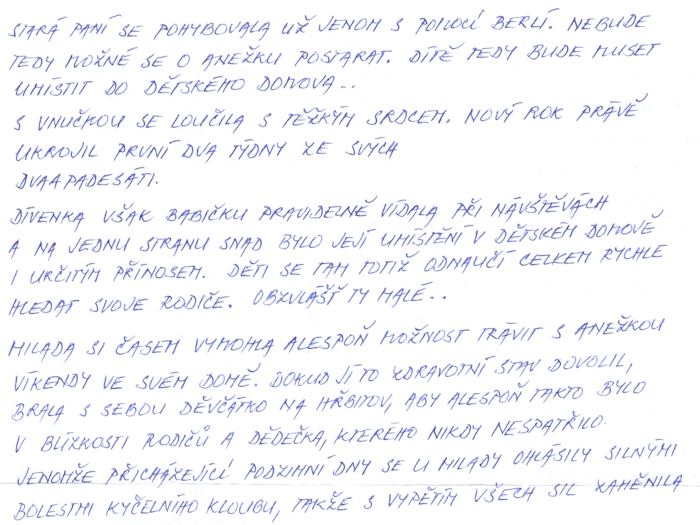 STARÁ PANÍ SE POHYBOVALA UŽ JENOM S POMOCÍ BERLÍ. NEBUDE
TEDY MOŽNÉ SE O ANEŽKU POSTARAT. DÍTĚ TEDY BUDE MUSET
UMÍSTIT DO DĚTSKÉHO DOMOVA..
S VNUČKOU SE LOUČILA S TĚŽKÝM SRDCEM. NOVÝ ROK PRÁVĚ
UKROJIL PRVNÍ DVA TÝDNY ZE SVÝCH
DVAAPADESÁTI.
DÍVENKA VŠAK BABIČKU PRAVIDELNĚ VÍDALA PŘI NÁVŠTĚVÁCH
A NA JEDNU STRANU SNAD BYLO JEJÍ UMÍSTĚNÍ V DĚTSKÉM DOMOVĚ
I URČITÝM PŘÍNOSEM. DĚTI SE TAM TOTIŽ ODNAUČÍ CELKEM RYCHLE
HLEDAT SVOJE RODIČE. OBZVLÁŠŤ TY MALÉ..
MILADA SI ČASEM VYMOHLA ALESPOŇ MOŽNOST TRÁVIT S ANEŽKOU
VÍKENDY VE SVÉM DOMĚ. DOKUD JÍ TO ZDRAVOTNÍ STAV DOVOLIL,
BRALA S SEBOU DĚVČÁTKO NA HŘBITOV, ABY ALESPOŇ TAKTO BYLO
V BLÍZKOSTI RODIČŮ A DĚDEČKA, KTERÉHO NIKDY NESPATŘILO.
JENOMŽE PŘICHÁZEJÍCÍ PODZIMNÍ DNY SE U MILADY OHLÁSILY SILNÝMI
BOLESTMI KYČELNÍHO KLOUBU, TAKŽE S VYPĚTÍM VŠECH SIL ZAMĚNILA